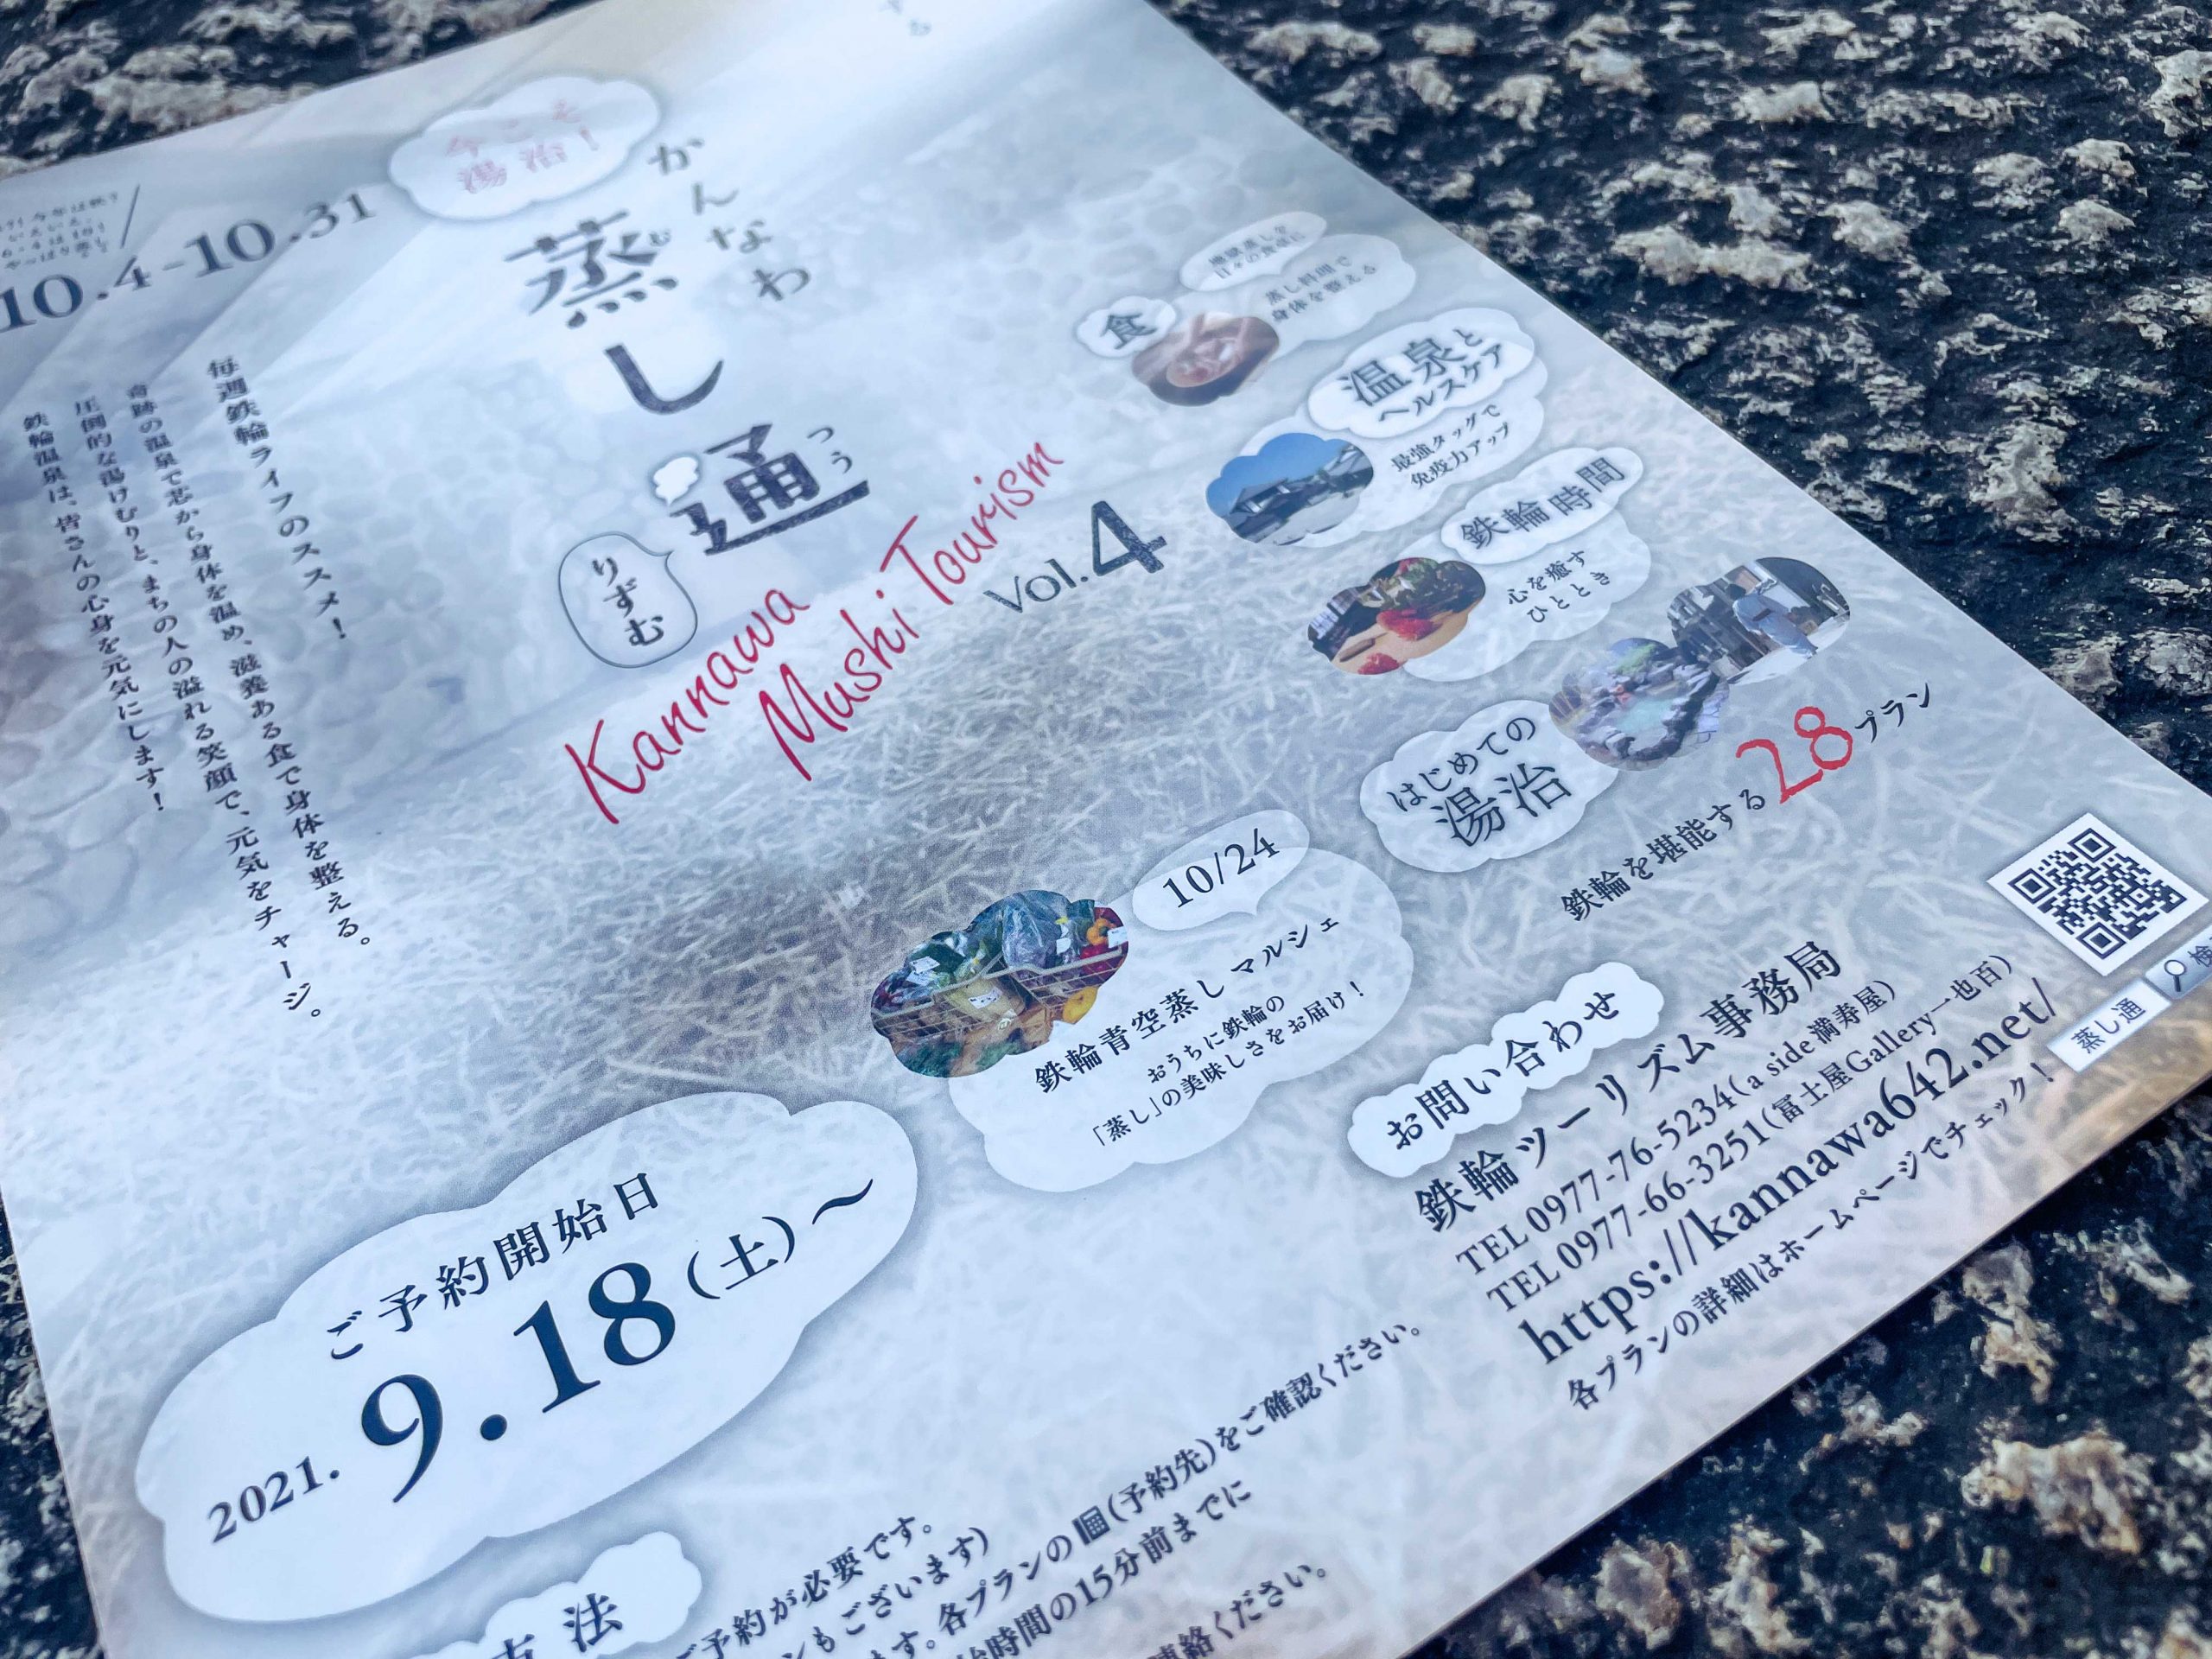 今こそ
湯治！
10.4-10.31
かんなわ
蒸し通
む
つう
りずむ
Kannawa
Mushi Tourism
Vol.4
毎週鉄輪ライフのススメ！
奇跡の温泉で芯から身体を温め、滋養ある食で身体を整える。
圧倒的な湯けむりと、まちの人の溢れる笑顔で、元気をチャージ。
鉄輪温泉は、皆さんの心身を元気にします！
食
蒸し料理で
身体を整える
温泉と
ヘルスケア
最強タッグで
免疫力アップ
鉄輪時間
心を癒す
ひととき
はじめての
湯治
鉄輪を堪能する28プラン
10/24
鉄輪青空蒸しマルシェ
おうちに鉄輪の
「蒸し」の美味しさをお届け！
ご予約開始日
2021.9.18(土)〜
お問い合わせ
鉄輪ツーリズム事務局
TEL 0977-76-5234(a side 満寿屋)
TEL 0977-66-3251(冨士屋Gallery一也百)
https://kannawa642.net/
各プランの詳細はホームページでチェック！
蒸し通
検
方法
ご予約が必要です。
もございます)
す。各プランの(予約先)をご確認ください。
始時間の15分前までに
連絡ください。